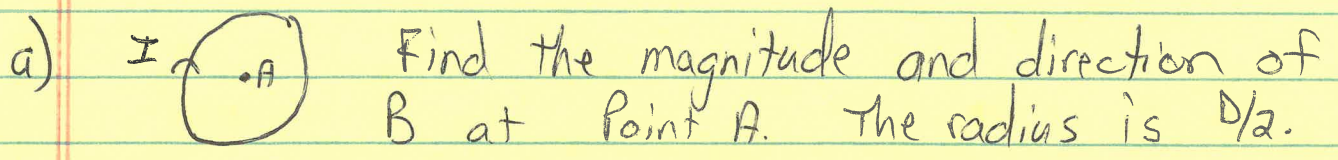 a) I .A Find the magnitude and direction of
B at Point A. The radius is D/2.